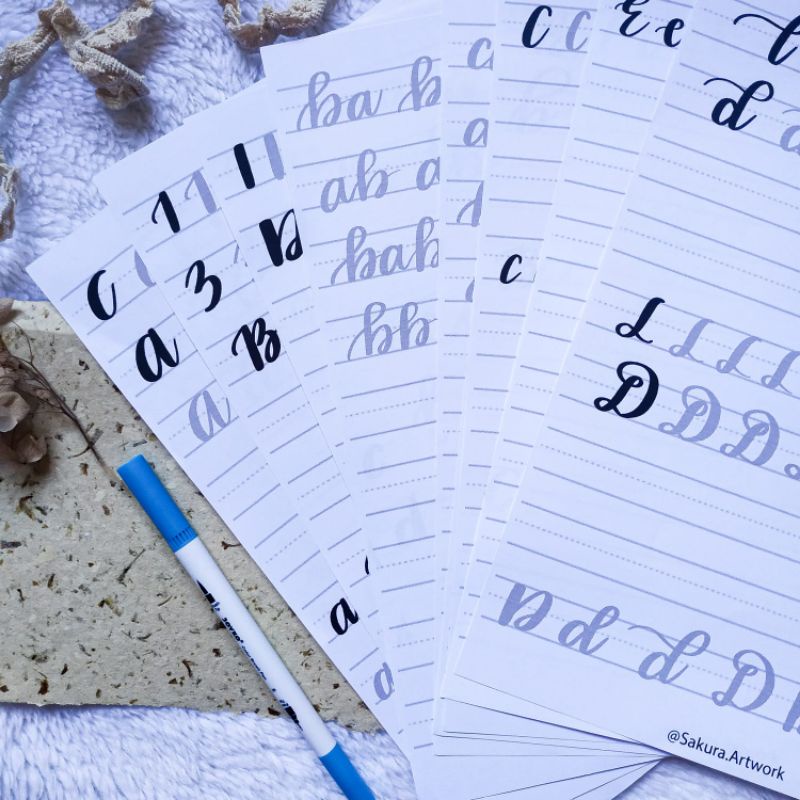 C
a
a
a
a
1 1
3
B
1 1
ba b
ab a
bab
bb
c
a
C C
c
E e
d d
D D D
d d D
@Sakura.Artwork